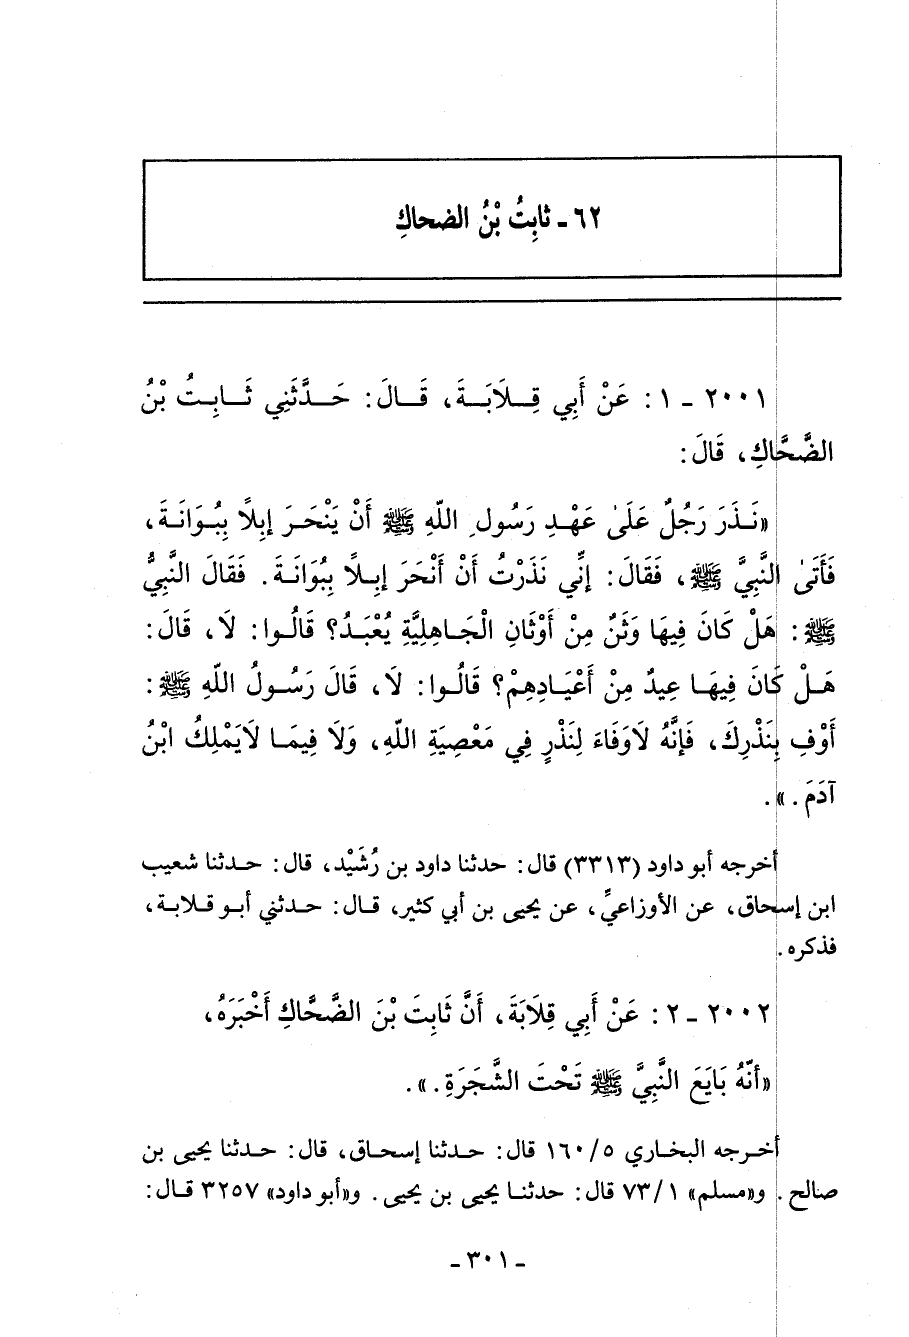 ٦٢ - ثابِتُ بْنُ الضحاكِ
٢٠٠١ - ١ : عَنْ أَبِي قِلَابَةَ، قَالَ: حَدَّثَنِي ثَابِتُ بْنُ
الضَّحَّاكِ، قَالَ:
«نَذَرَ رَجُلٌ عَلَىٰ عَهْدِ رَسُولِ اللّهِ ﷺ أَنْ يَنْحَرَ إِبِلًا بِبُوَانَةَ،
فَأَتَىٰ النَّبِيَّ ﷺ، فَقَالَ: إِنِّي نَذَرْتُ أَنْ أَنْحَرَ إِبِلًا بِبُوَانَةَ. فَقَالَ النَّبِيُّ
ﷺ: هَلْ كَانَ فِيهَا وَثَنٌ مِنْ أَوْثَانِ الْجَاهِلِيَّةِ يُعْبَدُ؟ قَالُوا: لَا، قَالَ:
هَلْ كَانَ فِيهَا عِيدٌ مِنْ أَعْيَادِهِمْ؟ قَالُوا: لَا، قَالَ رَسُولُ اللّهِ ﷺ:
أَوْفِ بِنَذْرِكَ، فَإِنَّهُ لَاوَفَاءَ لِنَذْرٍ فِي مَعْصِيَةِ اللّهِ، وَلَا فِيمَا لَايَمْلِكُ ابْنُ
آدَمَ.».
أخرجه أبو داود (٣٣١٣) قال: حدثنا داود بن رُشَيْد، قال: حدثنا شعيب
ابن إسحاق، عن الأوزاعيِّ، عن يحيى بن أبي كثير، قال: حدثني أبو قلابة،
فذكره.
٢٠٠٢ - ٢ : عَنْ أَبِي قِلَابَةَ، أَنَّ ثَابِتَ بْنَ الضَّحَّاكِ أَخْبَرَهُ،
«أَنَّهُ بَايَعَ النَّبِيَّ ﷺ تَحْتَ الشَّجَرَةِ.».
أخرجه البخاري ١٦٠/٥ قال: حدثنا إسحاق، قال: حدثنا يحيى بن
صالح. و«مسلم» ٧٣/١ قال: حدثنا يحيى بن يحيى. و«أبو داود» ٣٢٥٧ قال:
- ٣٠١ -